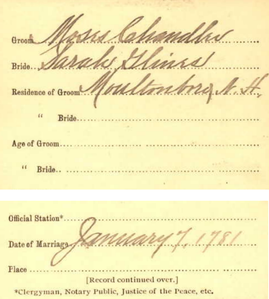 Groom Moses Chandler
Bride Sarah Glines
Residence of Groom Moultonboro, N. H.
" Bride
Age of Groom
" Bride
Official Station*
Date of Marriage January 7, 1781
Place
[Record continued over.]
*Clergyman, Notary Public, Justice of the Peace, etc.